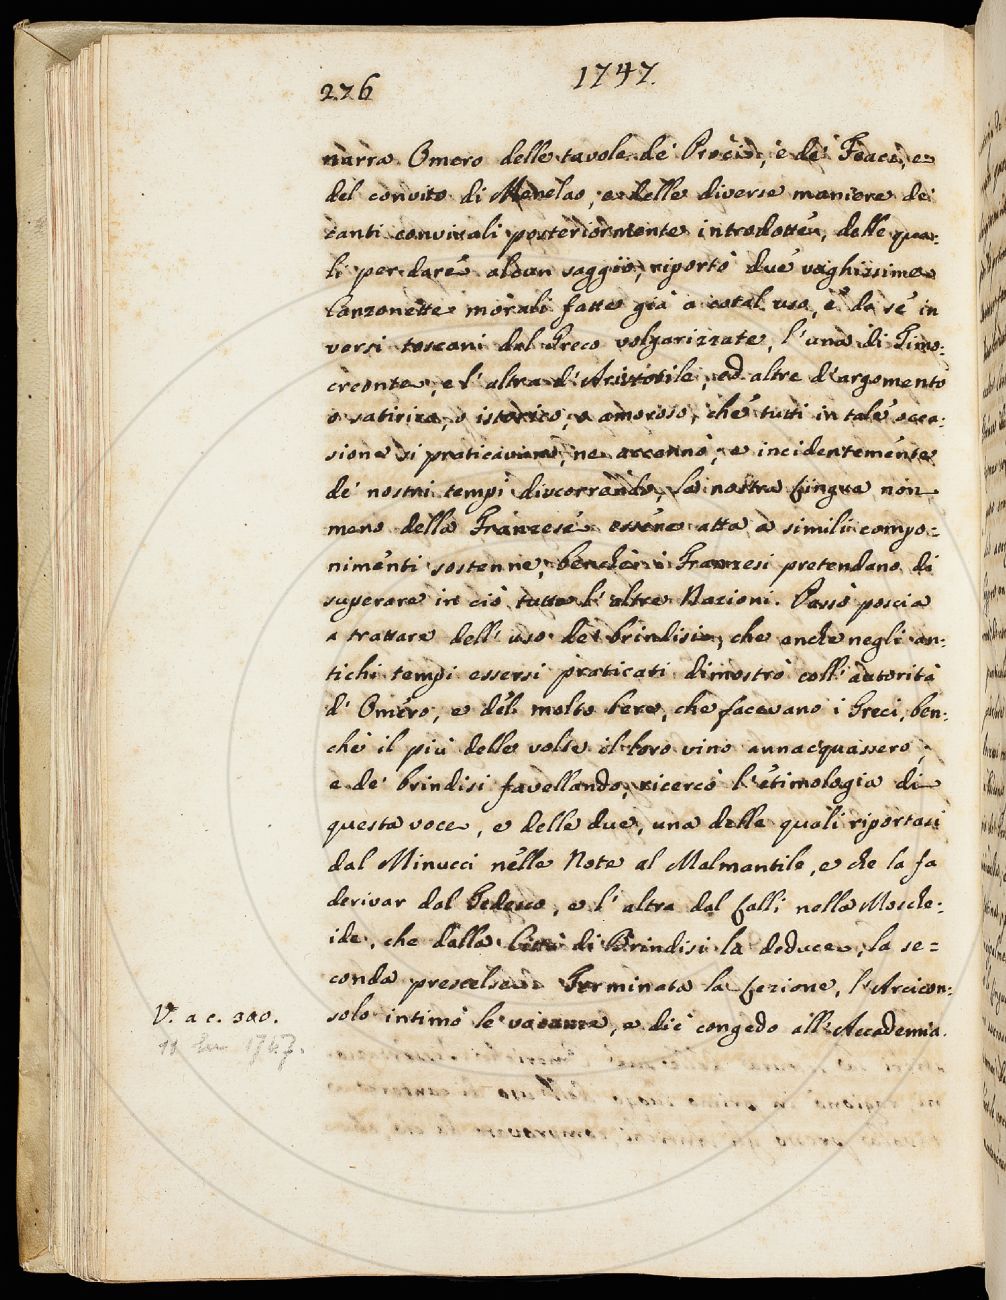 276
1747.
narra Omero delle tavole de' Proci, e de' Feaci, e
del convito di Menelao, e delle diverse maniere dei
canti convivali posteriormente introdotte, delle qua-
li per dare alcun saggio, riportò due vaghissime
Canzonette morali fatte già a cotal uso, e da sé in
versi toscani dal Greco volgarizzate, l'una di Timo-
creonte, e l'altra d'Aristotile, ed altre d'argomento
o satirico, o istorico, o amoroso, che tutti in tale occa-
sione si praticavano, ne accennò, e incidentemente
de' nostri tempi discorrendo, la nostra lingua non
meno della Franzese essere atta a simili compo-
nimenti sostenne, benchè i Franzesi pretendano di
superare in ciò tutte l'altre Nazioni. Passò poscia
a trattare dell'uso de' brindisi, che anche negli an-
tichi tempi essersi praticati dimostrò coll'autorità
d'Omero, e del molto bere, che facevano i Greci, ben-
chè il più delle volte il loro vino annacquassero,
e de' brindisi favellando, ricercò l'etimologia di
questa voce, e delle due, una delle quali riportasi
dal Minucci nelle Note al Malmantile, e che la fa
derivar dal Tedesco, e l'altra dal Lalli nella Mosche-
ide, che dalla Città di Brindisi la deduce, la se-
conda prescelse. Terminata la lezione, l'Arcicon-
solo intimò le vacanze, e diè congedo all'Accademia.
V. a c. 300.
11 1747.